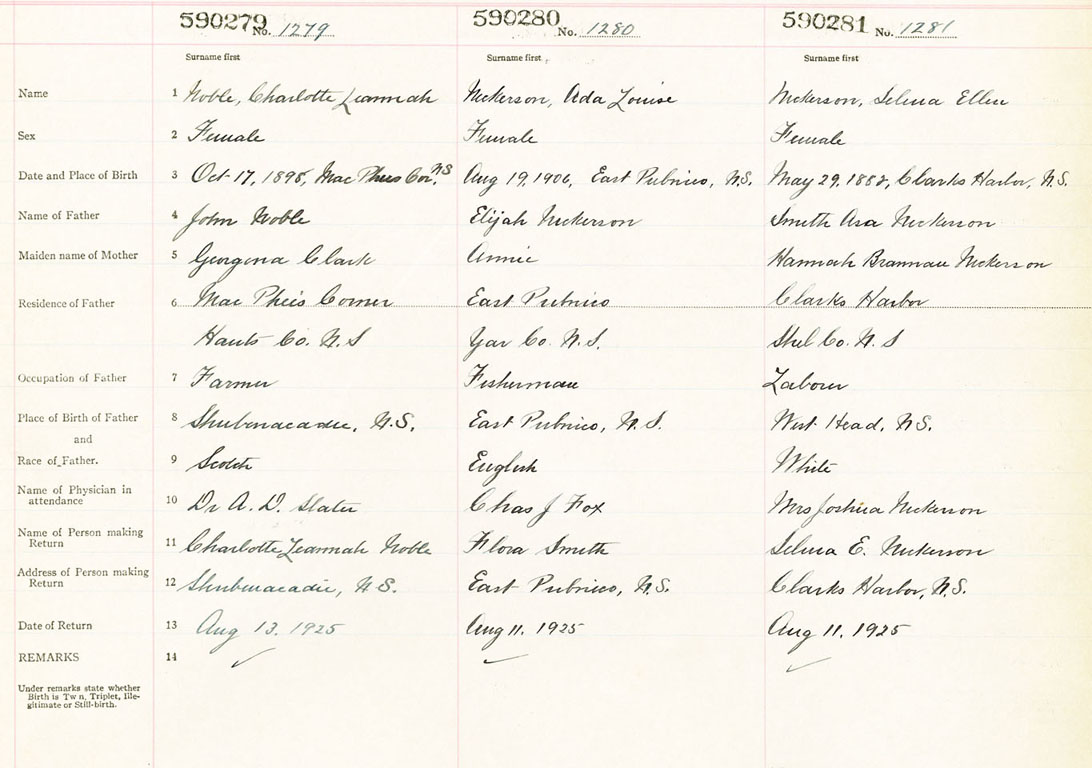 590279 No. 1279 590280 No. 1280 590281 No. 1281
Surname first Surname first Surname first
Name 1 Noble, Charlotte Leannah Nickerson, Ada Louise Nickerson, Selena Ellen
Sex 2 Female Female Female
Date and Place of Birth 3 Oct 17, 1898, Mac Phees Cor. N.S Aug 19, 1906, East Pubnico, N.S. May 29, 1882, Clarks Harbor, N.S.
Name of Father 4 John Noble Elijah Nickerson Smith Asa Nickerson
Maiden name of Mother 5 Georgena Clark Annie Hannah Brannan Nickerson
Residence of Father 6 Mac Phee's Corner East Pubnico Clarks Harbor
Hants Co. N.S Yar Co. N.S. Shel Co. N.S
Occupation of Father 7 Farmer Fisherman Labour
Place of Birth of Father 8 Shubenacadie, N.S. East Pubnico, N.S. West Head, N.S.
and
Race of Father. 9 Scotch English White
Name of Physician in
attendance 10 Dr A. D. Slater Chas J Fox Mrs Joshua Nickerson
Name of Person making
Return 11 Charlotte Leannah Noble Flora Smith Selena E. Nickerson
Address of Person making
Return 12 Shubenacadie, N.S. East Pubnico, N.S. Clarks Harbor, N.S.
Date of Return 13 Aug 13. 1925 Aug 11. 1925 Aug 11. 1925
REMARKS 14
Under remarks state whether
Birth is Tw n, Triplet, Ille-
gitimate or Still-birth.